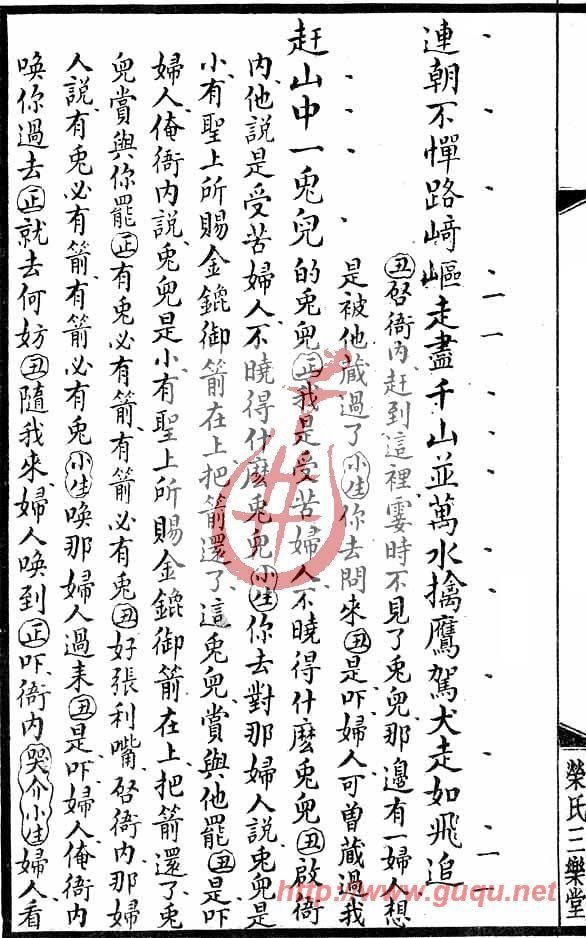 連朝不憚路崎嶇走盡千山並萬水擒鷹駕犬走如飛追
趕山中一兎兒
丑啓衙内赶到這裡霎時不見了兎兒那邊有一婦人想
是被他藏過了小生你去問來丑是吓婦人可曽藏過我
的兎兒正我是受苦婦人不曉得什麽兎兒丑啟衙
内他説是受苦婦人不曉得什麽兎兒小生你去對那婦人説兎兒是
小有聖上所賜金鎞御箭在上把箭還了這兎兒賞與他罷丑是吓
婦人俺衙内説兎兒是小有聖上所賜金鎞御箭在上把箭還了兎
兒賞與你罷正有兎必有箭有箭必有兎丑好張利嘴啓衙内那婦
人説有兎必有箭有箭必有兎小生喚那婦人過来丑是吓婦人俺衙内
喚你過去正就去何妨丑隨我来婦人喚到正吓衙内哭介小生婦人看
榮氏三樂堂
http://www.guqu.net